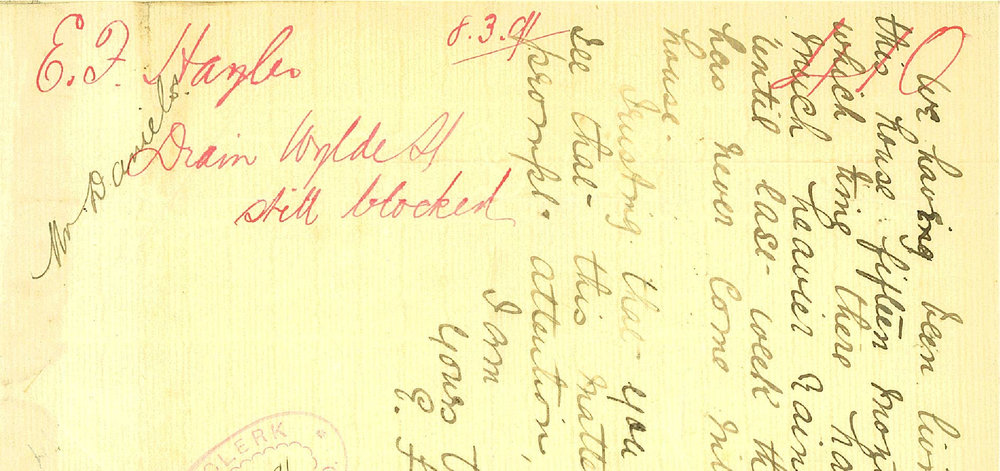 E. F. Hayles
8.3.91
Mr. Daniels.
Drain Wylde St
still blocked
We having been livi
this house fifteen mo
which time there ha
much heavier rain
until last week th
has never come in
house.
Trusting that you
see that this matte
prompt attention,
I am
Yours
E. F
CLERK